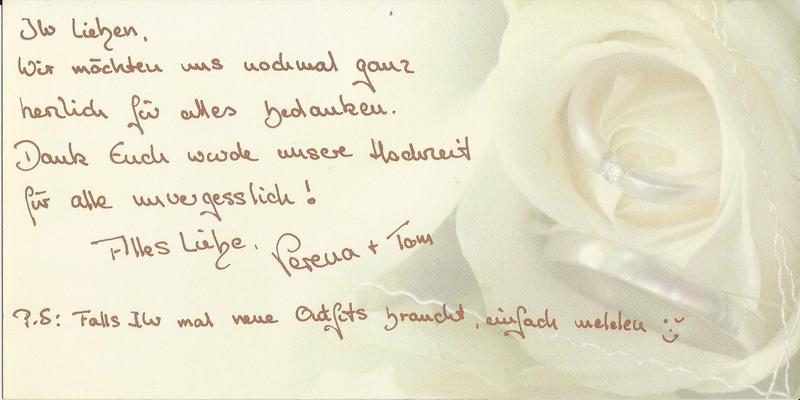 Ihr Lieben,
Wir möchten uns nochmal ganz
herzlich für alles bedanken.
Dank Euch wurde unsere Hochzeit
für alle unvergesslich!
Alles Liebe, Verena + Tom
P.S: Falls Ihr mal neue Outfits braucht, einfach melden :)